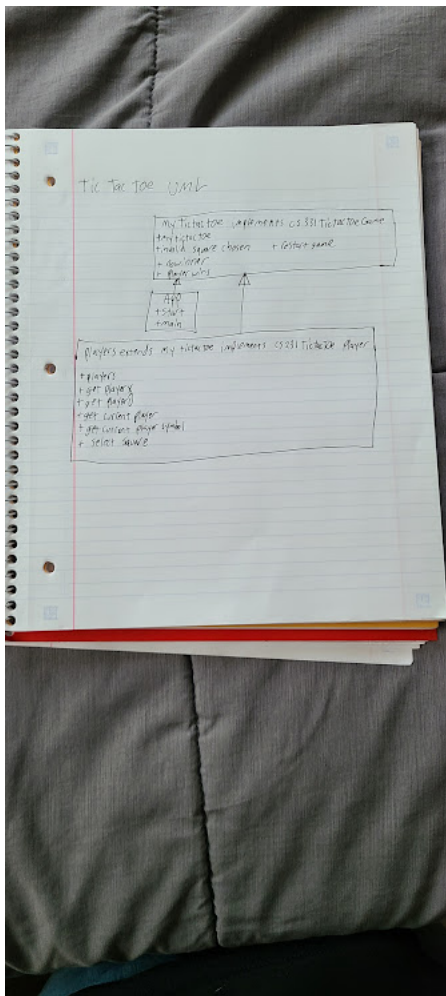 Tic Tac Toe UML
My Tictactoe implements CS331TicTacToeGame
+ my tictactoe
square chosen + restart game
+ nowinner
+ player wins
App
+ start
+ main
players extends my tictactoe implements CS331 TicTacToe Player
+ players
+ get playerX
+ get playerO
+ get current player
+ get current player symbol
+ select square